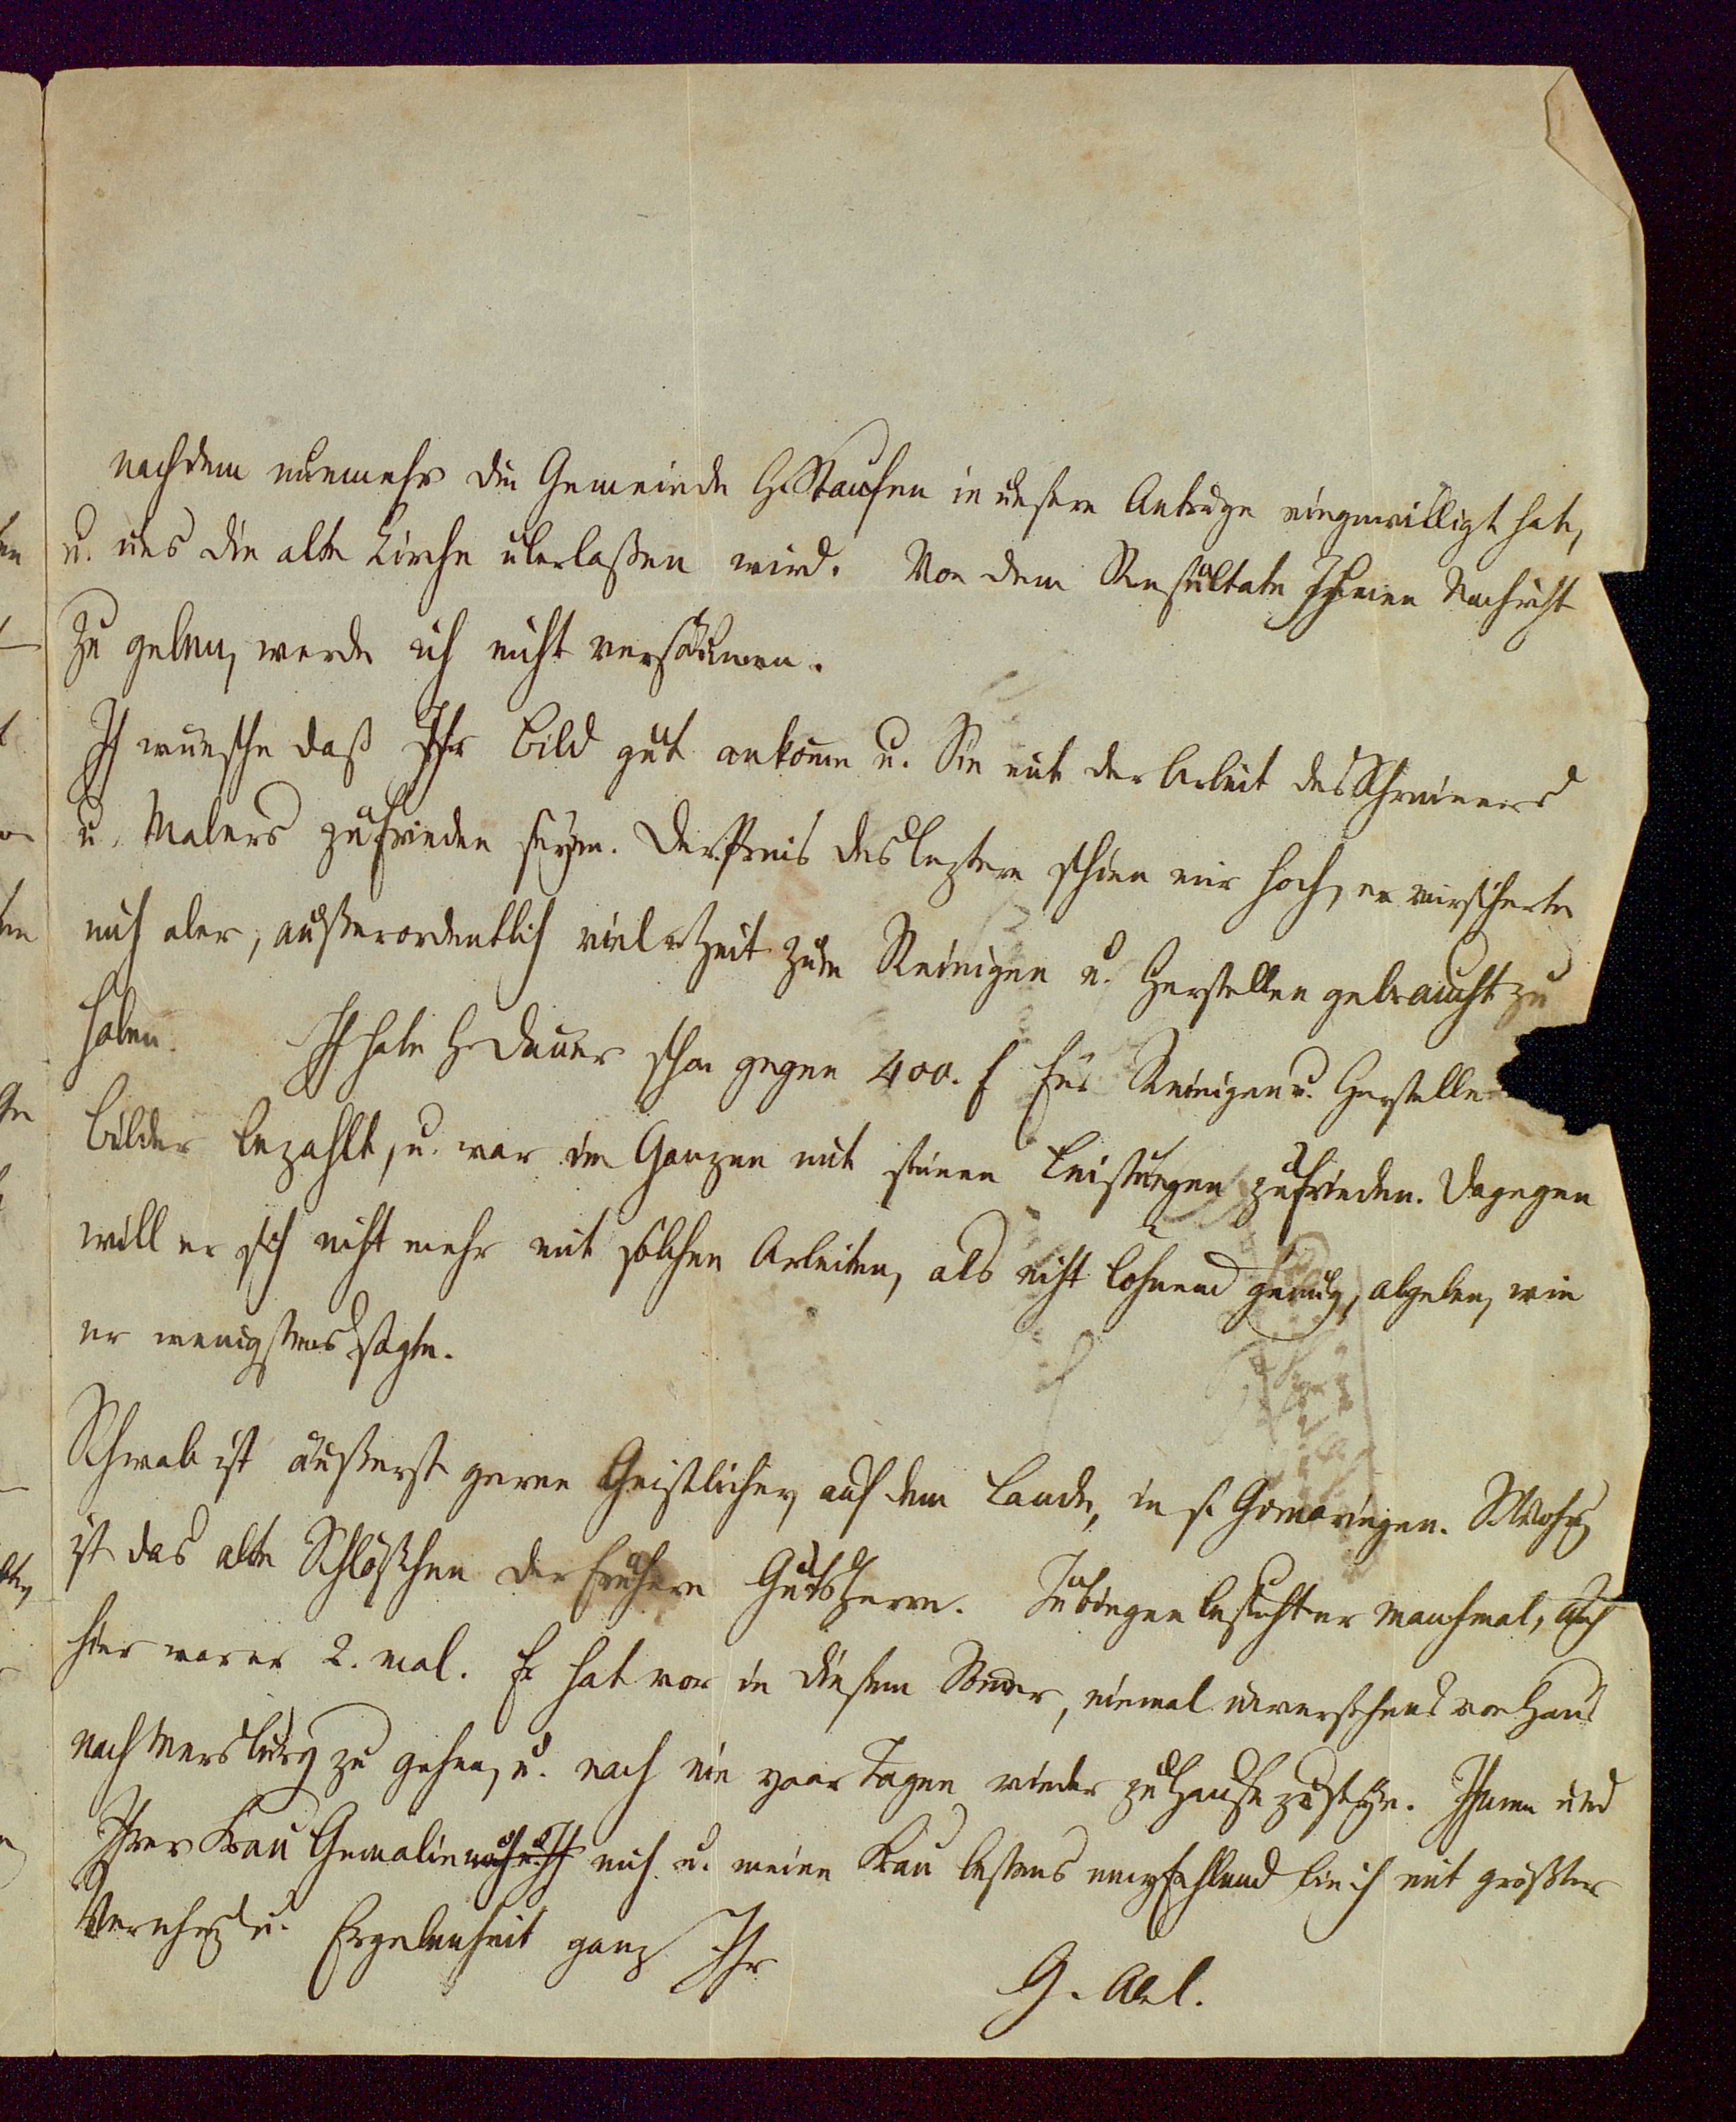 nachdem nunmehr die Gemeinde H.Staufen in unsere Anträge eingewilligt hat,
u. uns die alte Kirche überlaßen wird. Von dem Resultate Ihnen Nachricht
zu geben, werde ich nicht versäumen.
Ich wünsche daß Ihr Bild gut ankome u. Sie mit der Arbeit des Schreiners
u. Malers zufrieden seyen. Der Preis des leztern schien mir hoch, er versicherte
mich aber, außerordentlich viele Zeit zum Reinigen u. Herstellen gebraucht zu
haben. Ich habe H. Dauer schon gegen 400. f für Reinigen u. Herstelle
Bilder bezahlt, u. war im Ganzen mit seinen Leistungen zufrieden. Dagegen
will er sich nicht mehr mit solchen Arbeiten, als nicht lohnend genug, abgeben, wie
er wenigstens sagte.
Schwab ist äußerst gerne Geistlicher auf dem Lande, in s. Gomaringen. S. Wohng
ist das alte Schlößchen der frühern Gutsherrn. Tübingen besucht er manchmal, Auch
hier war er 2. mal. Er hat vor in diesem Somer, einmal unversehens von Haus
nach Mersburg zu gehen, u. nach ein paar Tagen wieder zu Hause zu seyn. Ihnen und
Ihrer Frau Gemalin mich u. meine Frau bestens empfehlend bin ich mit größter
Verehrg u. Ergebenheit ganz Ihr
G. Abel.